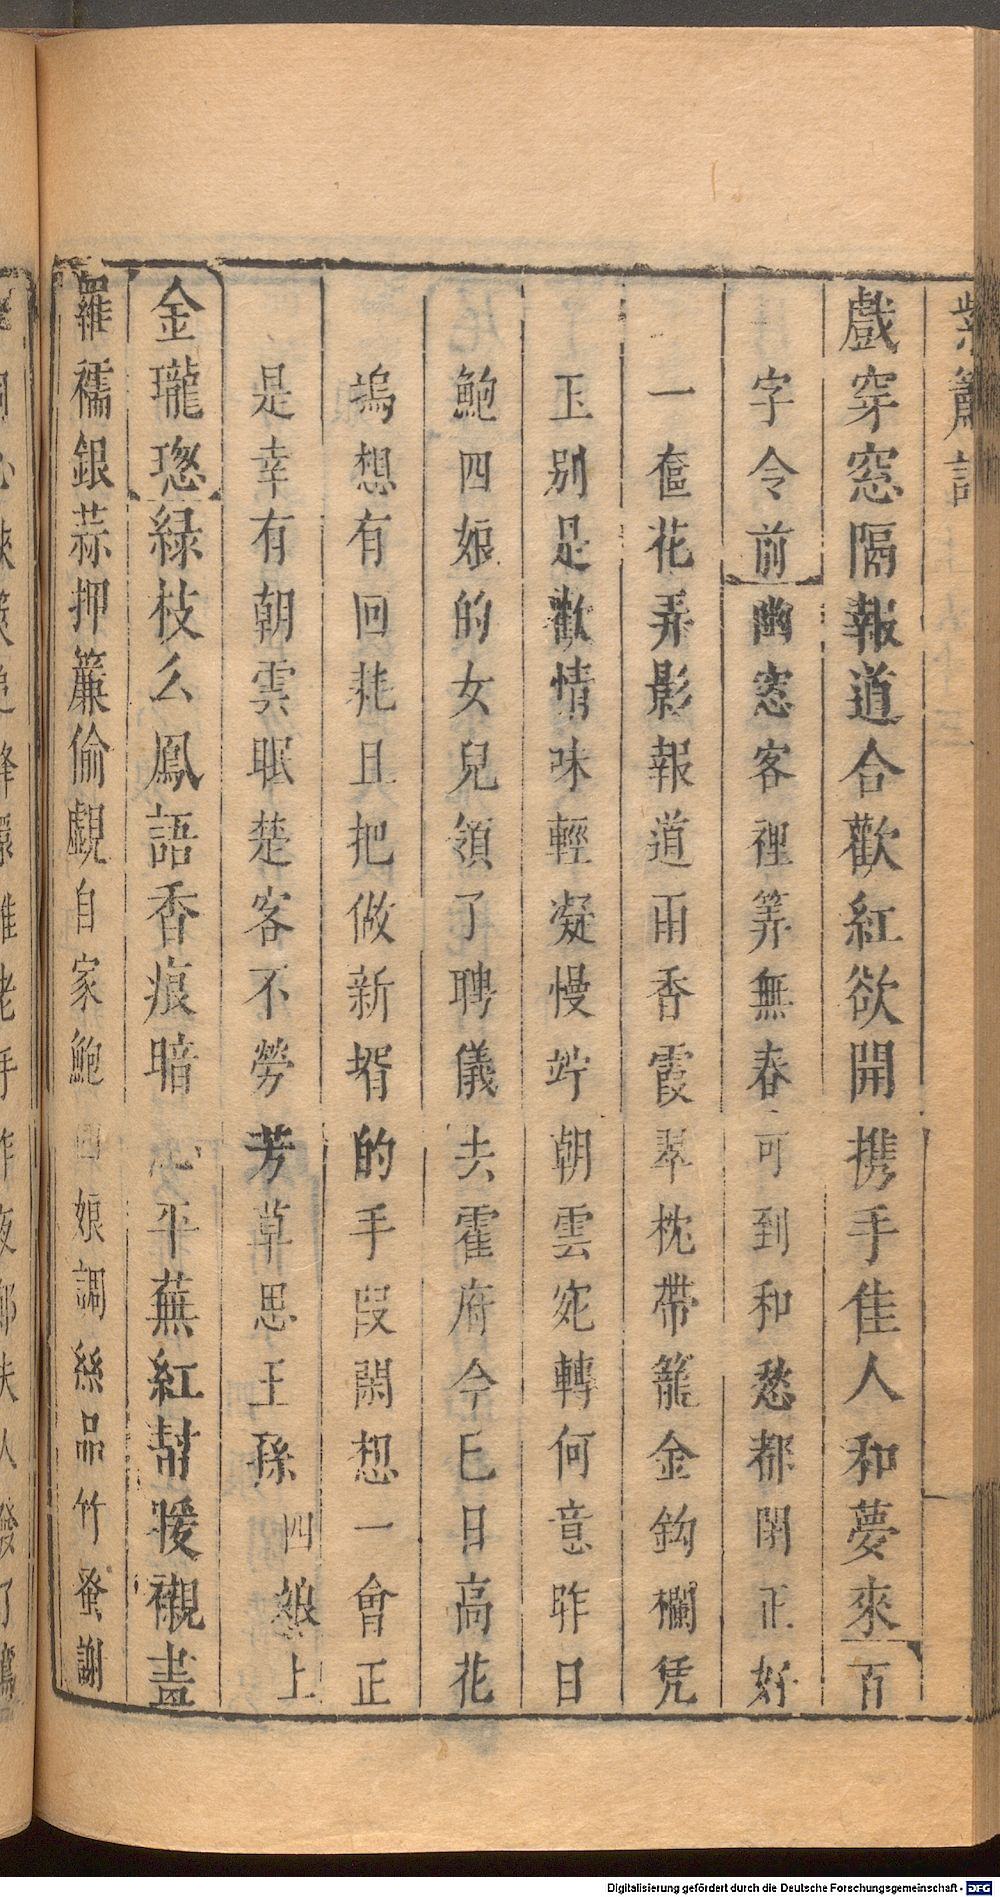 紫簫記
戲穿窓隔報道合歡紅欲開携手佳人和夢來百
字令前幽窓客裡筭無春可到和愁都閉正好
一奩花弄影報道雨香霞翠枕帶籠金鈎欄凭
玉別是歡情味輕凝慢竚朝雲宛轉何意昨日
鮑四娘的女兒領了聘儀去霍府今已日高花
塢想有回耗且把做新壻的手段閑想一會正
是幸有朝雲眠楚客不勞芳草思王孫四娘上
金瓏璁綠枝么鳳語香痕暗沁平蕪紅幇暖襯畫
羅襦銀蒜押簾偷覷自家鮑四娘調絲品竹蚤謝
Digitalisierung gefördert durch die Deutsche Forschungsgemeinschaft - DFG